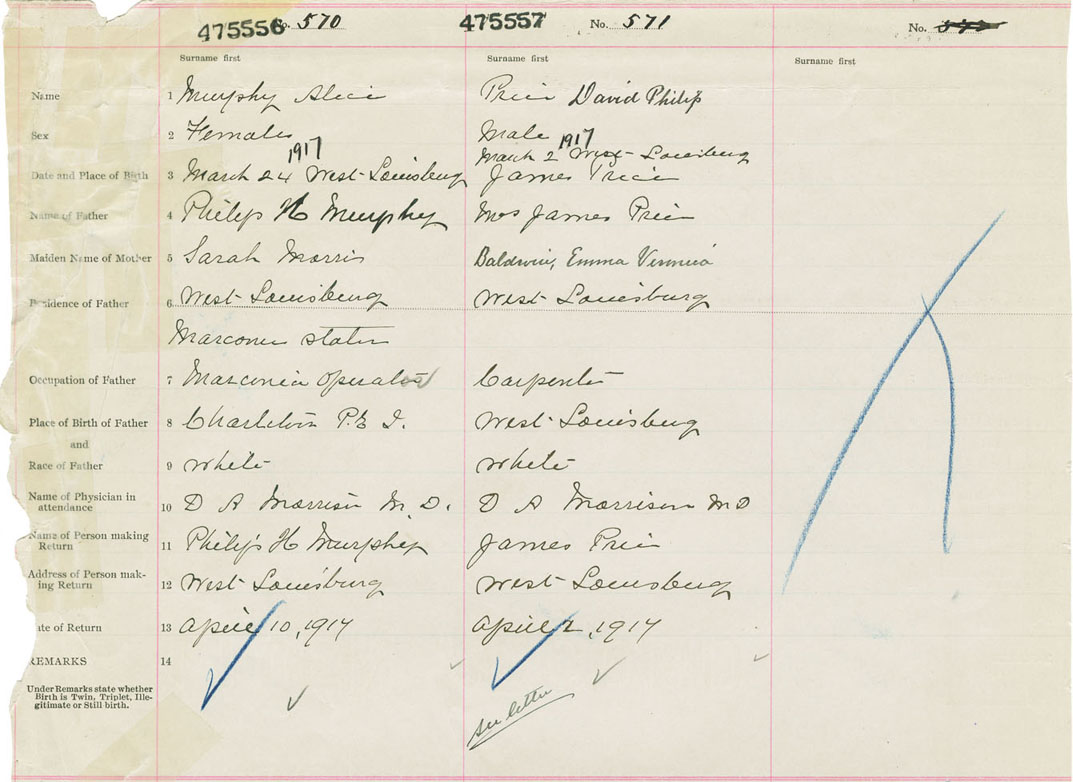 475556 No. 570 475557 No. 571 No.
Surname first Surname first Surname first
Name 1 Murphy Alice Price David Philip
Sex 2 Female Male
1917 1917
March 2 West Louisburg
Date and Place of Birth 3 March 24 West Louisburg James Price
Name of Father 4 Philip H Murphy Mrs James Price
Maiden Name of Mother 5 Sarah Morris Baldwin, Emma Veronica
Residence of Father 6 West Louisburg West Louisburg
Marconi station
Occupation of Father 7 Marconia Operator Carpenter
Place of Birth of Father 8 P. E I. West Louisburg
and
Race of Father 9 White White
Name of Physician in
attendance 10 D A Morrison M. D. D A Morrison M D
Name of Person making
Return 11 Philip H Murphy James Price
Address of Person mak-
ing Return 12 West Louisburg West Louisburg
ate of Return 13 April 10, 1917 April 2, 1917
REMARKS 14
Under Remarks state whether
Birth is Twin, Triplet, Ille-
gitimate or Still birth.
see letter